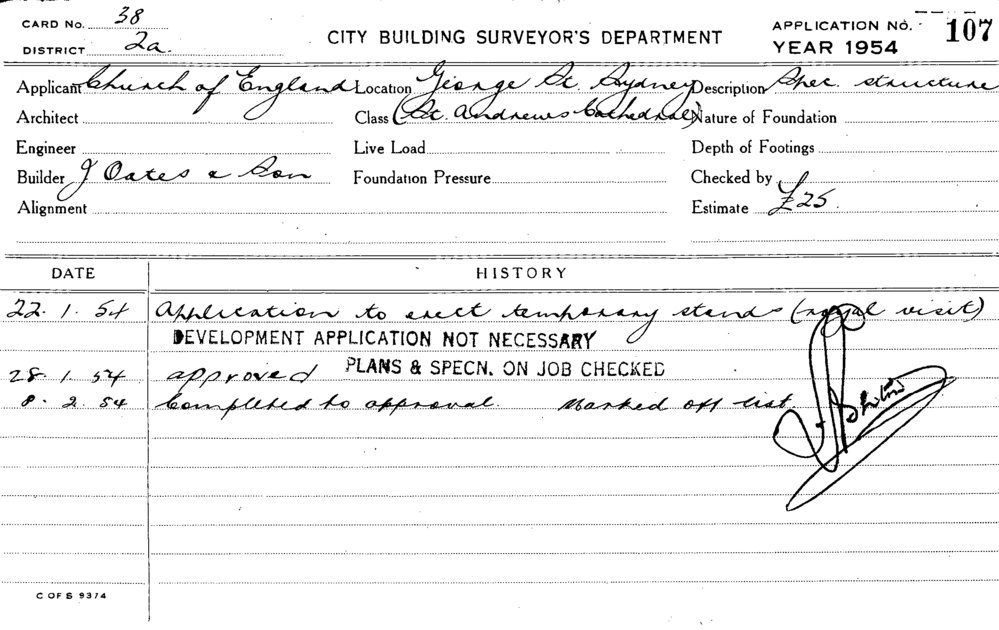 CARD No. 38
DISTRICT 2a.
CITY BUILDING SURVEYOR'S DEPARTMENT
APPLICATION No. 107
YEAR 1954
Applicant Church of England Location George St. Sydney Description Spec. structure
Architect Class (St. Andrews Cathedral) Nature of Foundation
Engineer Live Load Depth of Footings
Builder J Oates & Son Foundation Pressure Checked by
Alignment Estimate £25.
DATE HISTORY
22. 1. 54 Application to erect temporary stands (royal visit)
DEVELOPMENT APPLICATION NOT NECESSARY
PLANS & SPECN. ON JOB CHECKED
28. 1. 54 approved
8. 2. 54 Completed to approval. Marked off list.
C OF S 9374